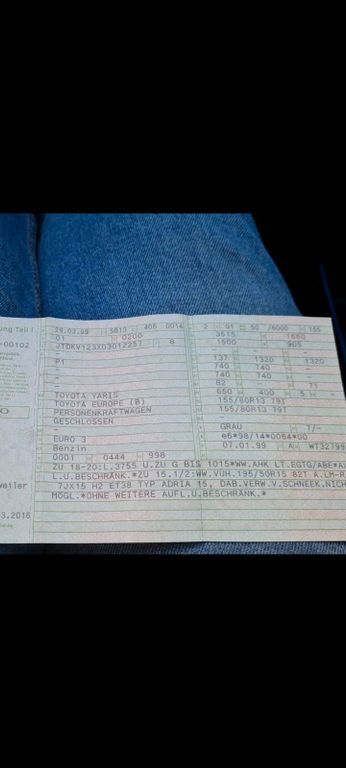 ung Teil I
29.03.99 5013 406 0014
2 01 50 /6000 155
-00102
01 0200
3615 1660
8
1500 905
P1
137 1320 1320
740 740 -
740 740 -
82 71
TOYOTA YARIS
650 400 5 -
TOYOTA EUROPE (B)
155/80R13 79T
PERSONENKRAFTWAGEN
155/80R13 79T
GESCHLOSSEN
-
GRAU 7/-
EURO 3
e6*98/14*0064*00
Benzin
07.01.99 A
0001 0444 998
weiler
ZU 18-20:L.3755 U.ZU G BIS 1015*WW.AHK LT.EGTG/ABE*AU
L.U.BESCHRÄNK.*ZU 15.1/2:WW.VUH.195/50R15 82T A.LM-R
7JX15 H2 ET38 TYP ADRIA 15, DAB.VERW.V.SCHNEEK.NICH
3.2016
MÖGL.*OHNE WEITERE AUFL.U.BESCHRÄNK.*